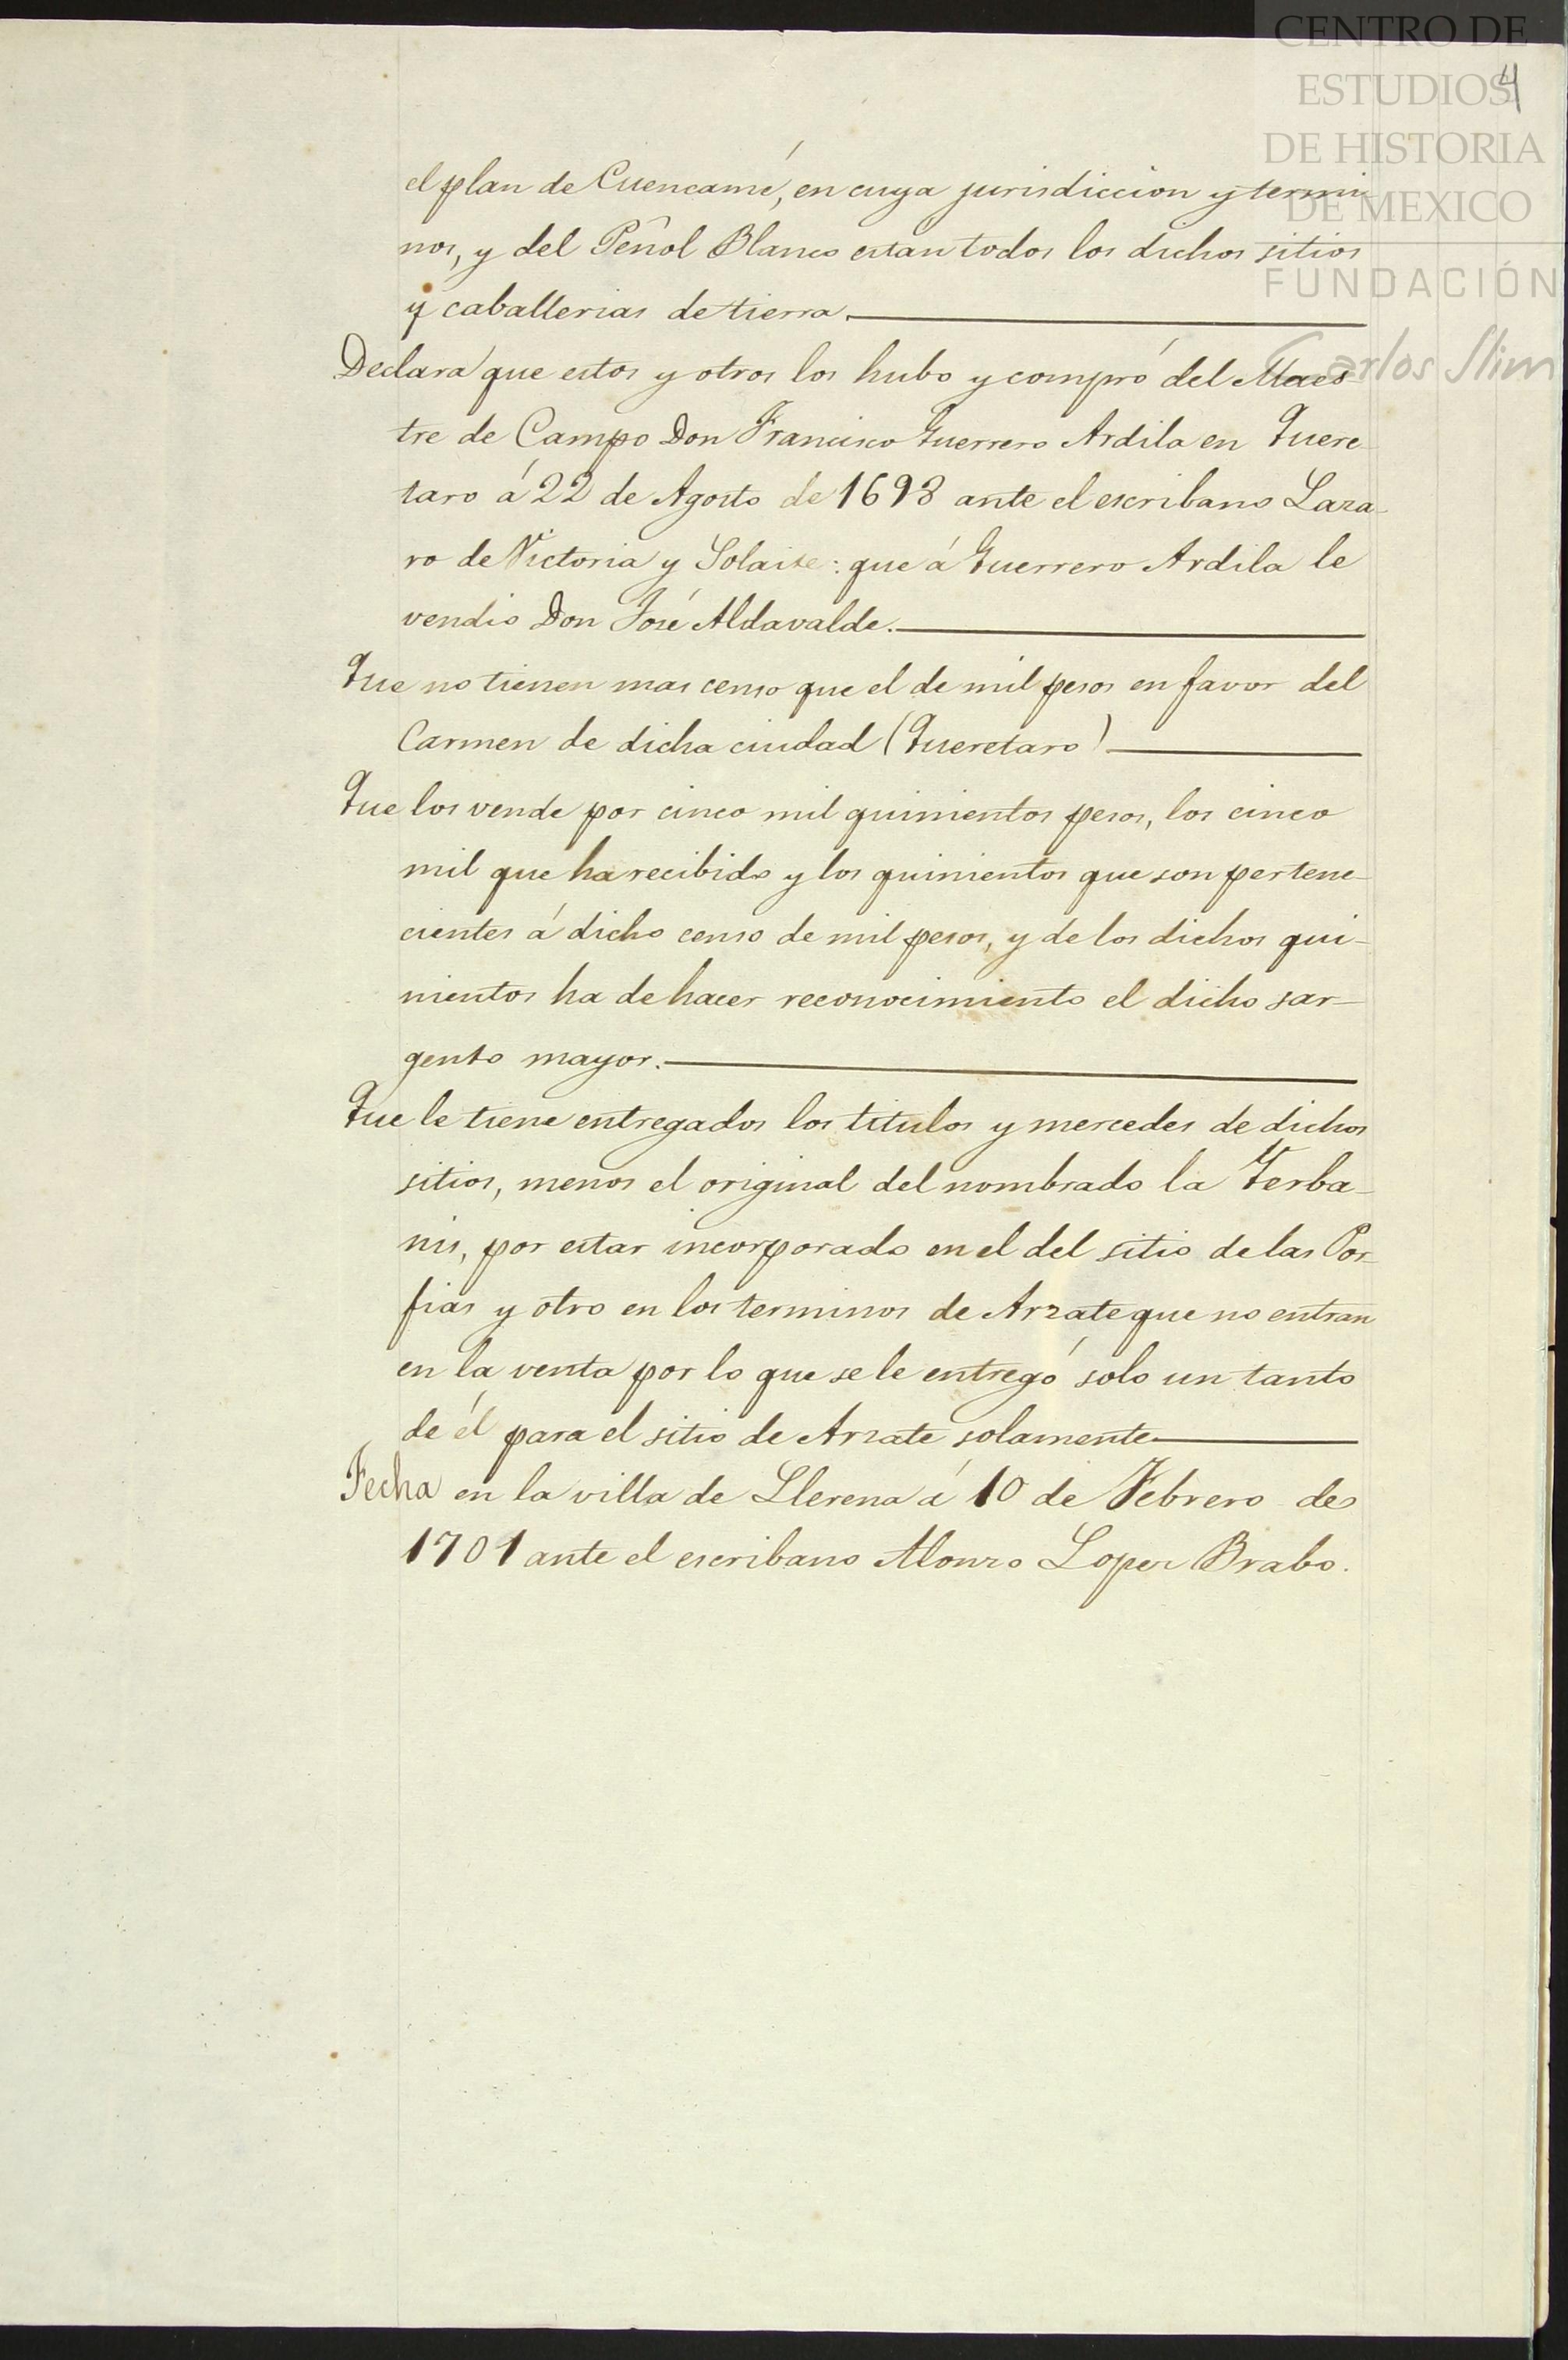 CENTRO DE
ESTUDIOS
DE HISTORIA
DE MEXICO
FUNDACIÓN
Carlos Slim
4
el plan de Cuencamé, en cuya jurisdiccion y termi-
nos, y del Peñol Blanco estan todos los dichos sitios
y caballerias de tierra.
Declara que estos y otros los hubo y compró del Maes-
tre de Campo Don Francisco Guerrero Ardila en Quere-
taro á 22 de Agosto de 1698 ante el escribano Laza-
ro de Victoria y Solaise: que á Guerrero Ardila le
vendio Don José Aldavalde.
Que no tienen mas censo que el de mil pesos en favor del
Carmen de dicha ciudad (Queretaro)
Que los vende por cinco mil quinientos pesos, los cinco
mil que ha recibido y los quinientos que son pertene-
cientes á dicho censo de mil pesos, y de los dichos qui-
nientos ha de hacer reconocimiento el dicho sar-
gento mayor.
Que le tiene entregados los titulos y mercedes de dichos
sitios, menos el original del nombrado la Yerba-
nis, por estar incorporado en el del sitio de las Por-
fias y otro en los terminos de Arzate que no entran
en la venta por lo que se le entregó solo un tanto
de él para el sitio de Arzate solamente
Fecha en la villa de Llerena á 10 de Febrero de
1701 ante el escribano Alonzo Lopez Brabo.